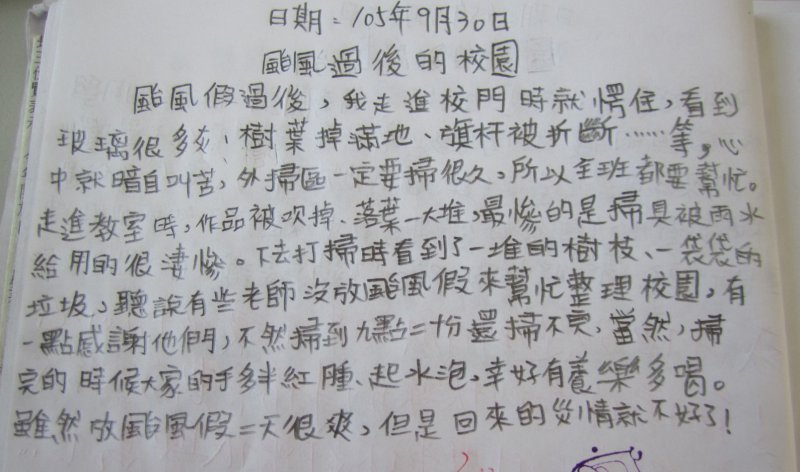 日期:105年9月30日
颱風過後的校園
颱風假過後,我走進校門時就愣住,看到
玻璃很多灰、樹葉掉滿地、旗杆被折斷……等,心
中就暗自叫苦,外掃區一定要掃很久,所以全班都要幫忙。
走進教室時,作品被吹掉、落葉一大堆,最慘的是掃具被雨水
給用的很淒慘。下去打掃時看到了一堆的樹枝、一袋袋的
垃圾,聽說有些老師沒放颱風假來幫忙整理校園,有
一點感謝他們,不然掃到九點二十份還掃不完,當然,掃
完的時候大家的手多半紅腫、起水泡,幸好有養樂多喝。
雖然放颱風假二天很爽,但是回來的災情就不好了!